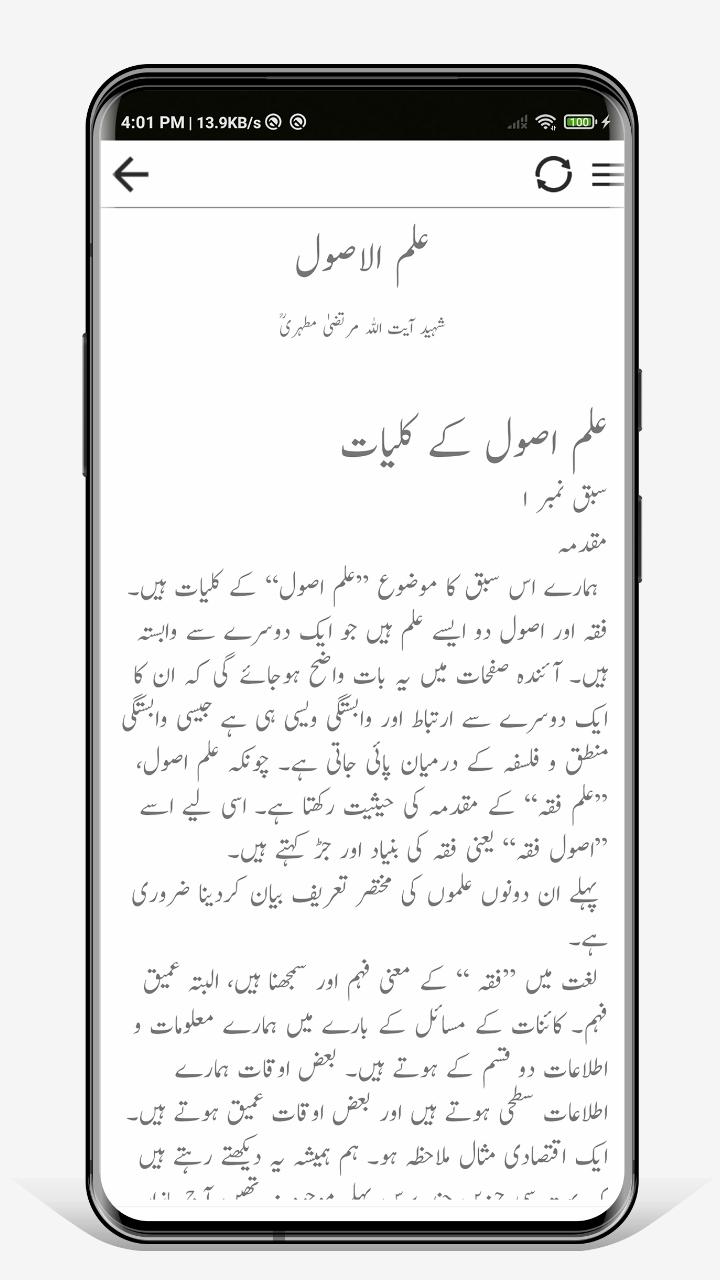 4:01 PM | 13.9KB/s
100
علم الاصول
شہید آیت اللہ مرتضیٰ مطہریؒ
علم اصول کے کلیات
سبق نمبر ۱
مقدمہ
ہمارے اس سبق کا موضوع ”علم اصول“ کے کلیات ہیں۔
فقہ اور اصول دو ایسے علم ہیں جو ایک دوسرے سے وابستہ
ہیں۔ آئندہ صفحات میں یہ بات واضح ہوجائے گی کہ ان کا
ایک دوسرے سے ارتباط اور وابستگی ویسی ہی ہے جیسی وابستگی
منطق و فلسفہ کے درمیان پائی جاتی ہے۔ چونکہ علم اصول،
”علم فقہ“ کے مقدمہ کی حیثیت رکھتا ہے۔ اسی لیے اسے
”اصول فقہ“ یعنی فقہ کی بنیاد اور جڑ کہتے ہیں۔
پہلے ان دونوں علموں کی مختصر تعریف بیان کردینا ضروری
ہے۔
لغت میں ”فقہ “ کے معنی فہم اور سمجھنا ہیں، البتہ عمیق
فہم۔ کائنات کے مسائل کے بارے میں ہمارے معلومات و
اطلاعات دو قسم کے ہوتے ہیں۔ بعض اوقات ہمارے
اطلاعات سطحی ہوتے ہیں اور بعض اوقات عمیق ہوتے ہیں۔
ایک اقتصادی مثال ملاحظہ ہو۔ ہم ہمیشہ یہ دیکھتے رہتے ہیں